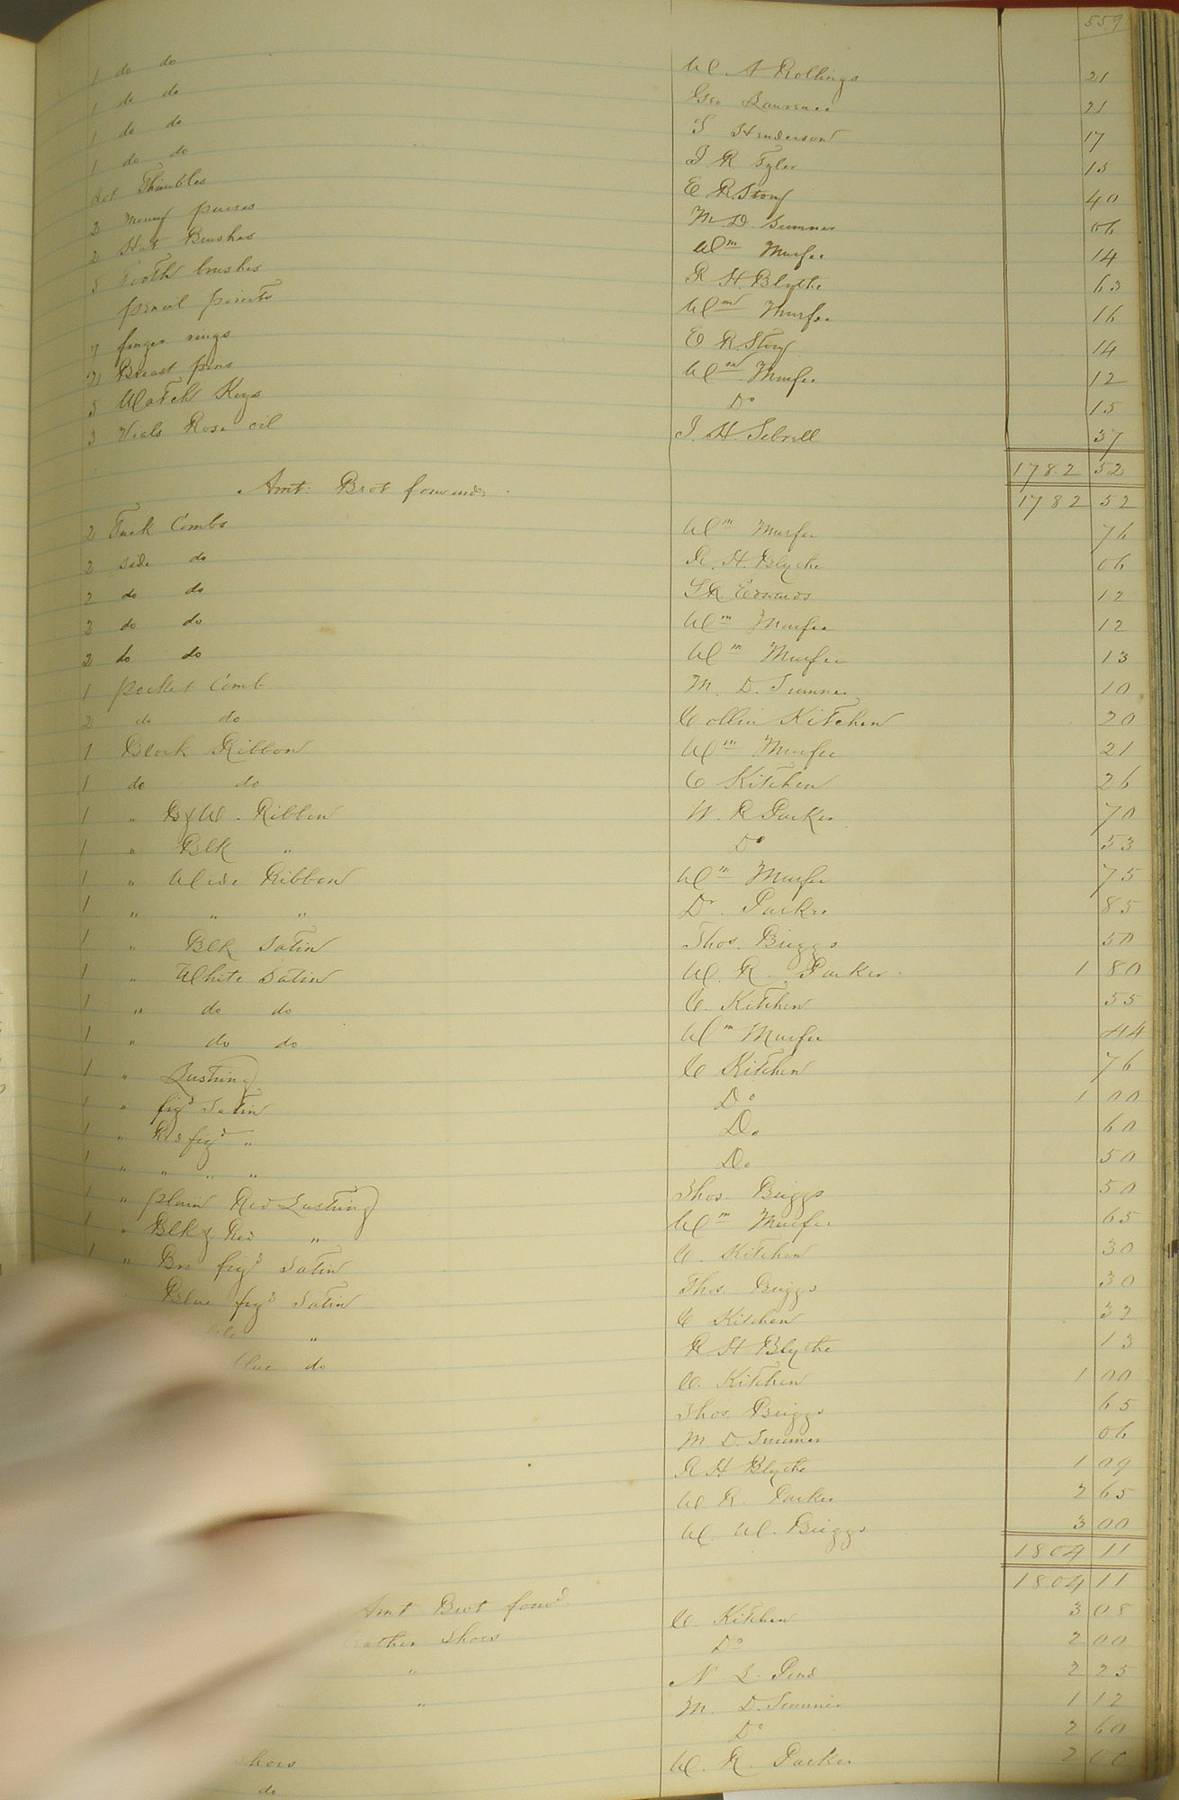 559
1 do do W A Rollings 21
1 do do Geo Lawrence 21
1 do do S Henderson 17
1 do do J R Tyler 15
Lot Thimbles E R Story 40
2 Money purses M D Sumner 06
2 Hat Brushes Wm Murfee 14
5 tooth brushes R H Blythe 63
pencil points Wm Murfee 16
7 finger rings E R Story 14
21 Breast pins Wm Murfee 12
5 Watch Keys Do 15
3 Vials Rose oil J. H Sebrell 37
1782 52
Amt: Brot forward 1782 52
2 Tuck Combs Wm Murfee 76
2 side do R. H. Blythe 06
2 do do S R. Edwards 12
2 do do Wm Murfee 12
2 do do Wm Murfee 13
1 pocket Comb M. D. Sumner 10
2 do do Collin Kitchen 20
1 Black Ribbon Wm Murfee 21
1 do do C Kitchen 26
1 " B & W. Ribbon W. R Parker 70
1 " Blk " Do 53
1 " Wide Ribbon Wm Murfee 75
1 " " " D. Parker 85
1 " Blk Satin Thos. Briggs 50
1 " White Satin W. R. Parker 1 80
1 " do do C. Kitchen 55
1 " do do Wm Murfee 44
1 " Lustring C Kitchen 76
1 " figd Satin Do 1 00
1 " Red figd " Do 60
1 " " " " Do 50
1 " plain Red Lustring Thos. Briggs 50
1 " Blk & Red " Wm Murfee 65
1 " Bro figd Satin C. Kitchen 30
Blue figd Satin Thos. Briggs 30
" C Kitchen 32
blue do R H Blythe 13
C. Kitchen 1 00
Thos. Briggs 65
M D. Sumner 06
R H Blythe 1 09
W R. Parker 2 65
W. W. Briggs 3 00
1804 11
1804 11
Amt Brot ford C Kitchen 3 08
shoes Do 2 00
" N L. 2 25
" M. D. Sumner 1 12
Do 2 60
shoes W. R. Parker 2 00
do